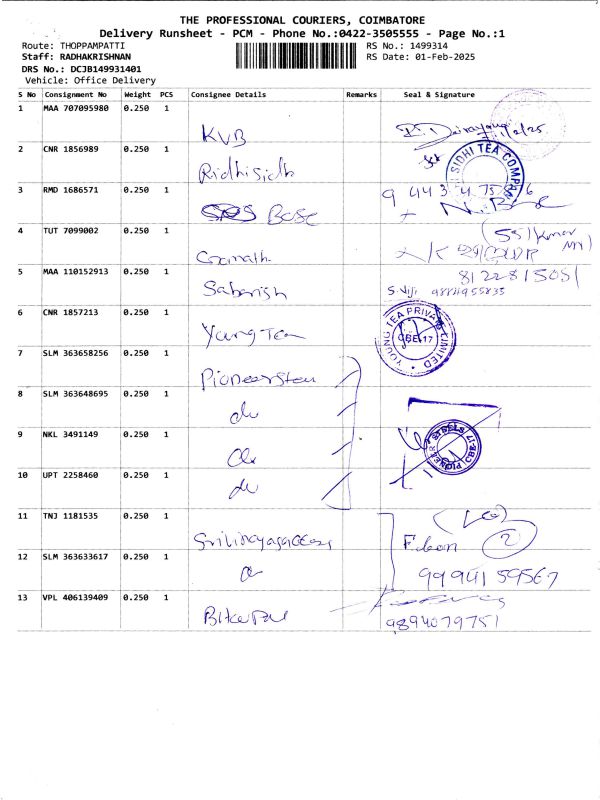 THE PROFESSIONAL COURIERS, COIMBATORE
Delivery Runsheet - PCM - Phone No.:0422-3505555 - Page No.:1
Route: THOPPAMPATTI RS No.: 1499314
Staff: RADHAKRISHNAN RS Date: 01-Feb-2025
DRS No.: DCJB149931401
Vehicle: Office Delivery
S No Consignment No Weight PCS Consignee Details Remarks Seal & Signature
1 MAA 707095980 0.250 1
KVB
2 CNR 1856989 0.250 1
Ridhisidh
SIDHI TEA COMPANY
3 RMD 1686571 0.250 1
BOSC
4 TUT 7099002 0.250 1
Gomath
5 MAA 110152913 0.250 1
8122815051
Sabarish S.Viji 9884955835
6 CNR 1857213 0.250 1
Young Tea
YOUNG TEA PRIVATE LIMITED
CBE-17
7 SLM 363658256 0.250 1
Pioneer Steel
8 SLM 363648695 0.250 1
do
9 NKL 3491149 0.250 1
do
PIONEER STEELS CBE-17
10 UPT 2258460 0.250 1
do
11 TNJ 1181535 0.250 1
2
12 SLM 363633617 0.250 1
do
9994159567
13 VPL 406139409 0.250 1
9894079751